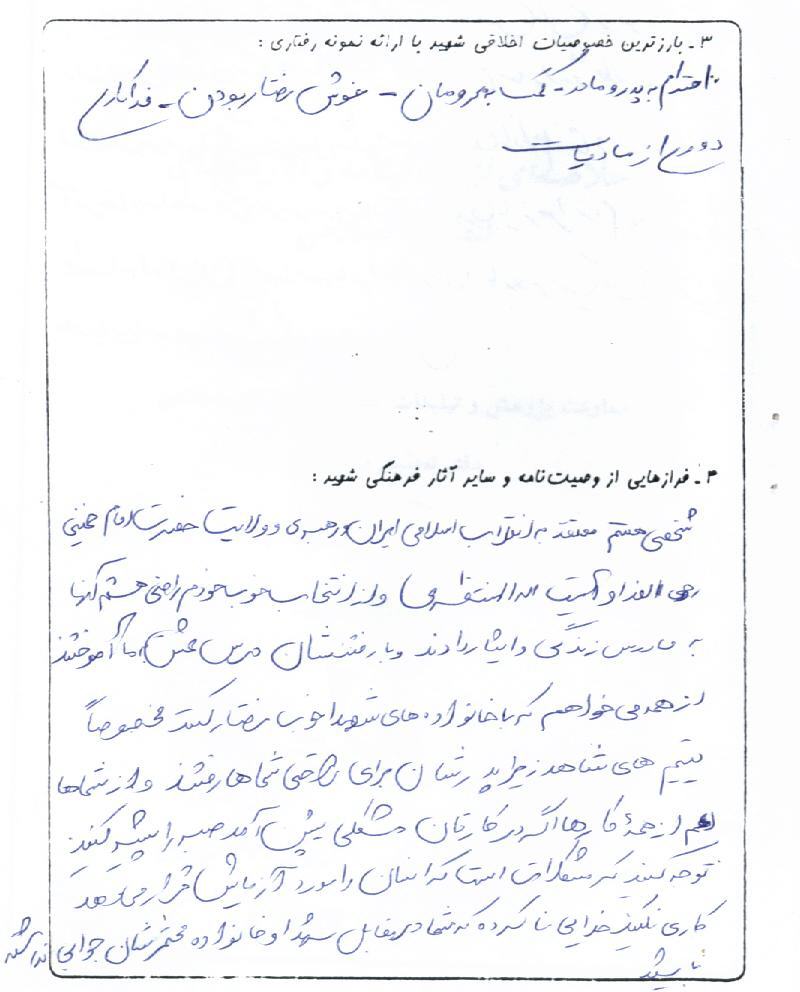 ۳ـ بارزترین خصوصیات اخلاقی شهید با ارائه نمونه رفتاری :
احترام به پدر و مادر - کمک به محرومان - خوش رفتار بودن - فداکاری
دوری از مادیات
۴ـ فرازهایی از وصیت‌نامه و سایر آثار فرهنگی شهید :
شخصی هستم معتقد به انقلاب اسلامی ایران و رهبری و ولایت حضرت امام خمینی
و از انتخاب خوب خودم راضی هستم آنها
به ما درس زندگی و ایثار دادند و با رفتنشان درس عشق به ما آموختند
از همه می خواهم که با خانواده های شهدا خوب رفتار کنند مخصوصاً
یتیم های شاهد زیرا پدرشان برای راحتی شماها رفتند و از شماها
هم از همهٔ کارها اگر در کارتان مشکلی پیش آمد صبر را پیشه کنید
توجه کنید که مشکلات است که انسان را مورد آزمایش قرار می دهد
کاری نکنید خدایی نا کرده که شما در مقابل شهدا و خانواده محترمشان جوابی نداشته
باشید